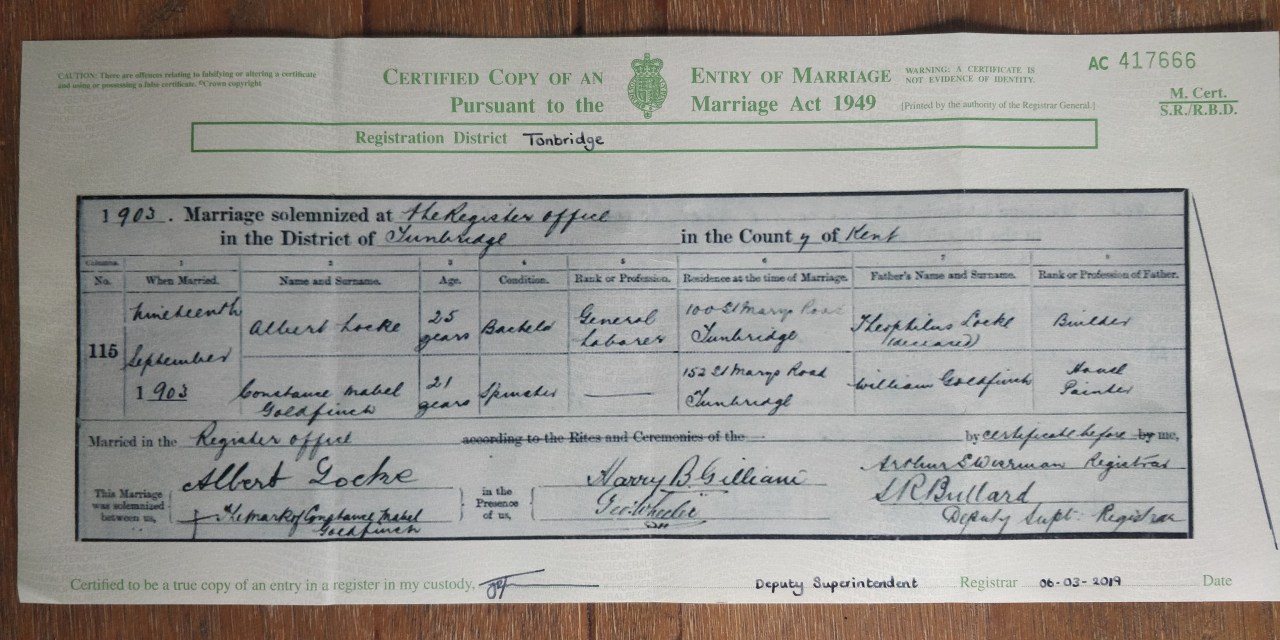 CAUTION: There are offences relating to falsifying or altering a certificate
and using or possessing a false certificate. ©Crown copyright
CERTIFIED COPY OF AN ENTRY OF MARRIAGE
Pursuant to the Marriage Act 1949
WARNING: A CERTIFICATE IS
NOT EVIDENCE OF IDENTITY.
[Printed by the authority of the Registrar General.]
AC 417666
M. Cert.
S.R./R.B.D.
Registration District Tonbridge
1903. Marriage solemnized at the Register office
in the District of Tunbridge in the County of Kent
Columns 1 2 3 4 5 6 7 8
No. When Married. Name and Surname. Age. Condition. Rank or Profession. Residence at the time of Marriage. Father's Name and Surname. Rank or Profession of Father.
115
Nineteenth
September
1903
Albert Locke
25
years
Bachelor
General
Laborer
100 St Marys Road
Tunbridge
Theophilus Locke
(deceased)
Builder
Constance Mabel
Goldfinch
21
years
Spinster
152 St Marys Road
Tunbridge
William Goldfinch
House
Painter
Married in the Register office according to the Rites and Ceremonies of the by certificate before by me,
This Marriage
was solemnized
between us,
Albert Locke
The mark of Constance Mabel
Goldfinch
in the
Presence
of us,
Harry B. Gilliam
Geo. Wheeler
Arthur S Registrar
S R Bullard
Deputy Supt. Registrar
Certified to be a true copy of an entry in a register in my custody, Deputy Superintendent Registrar 06-03-2019 Date